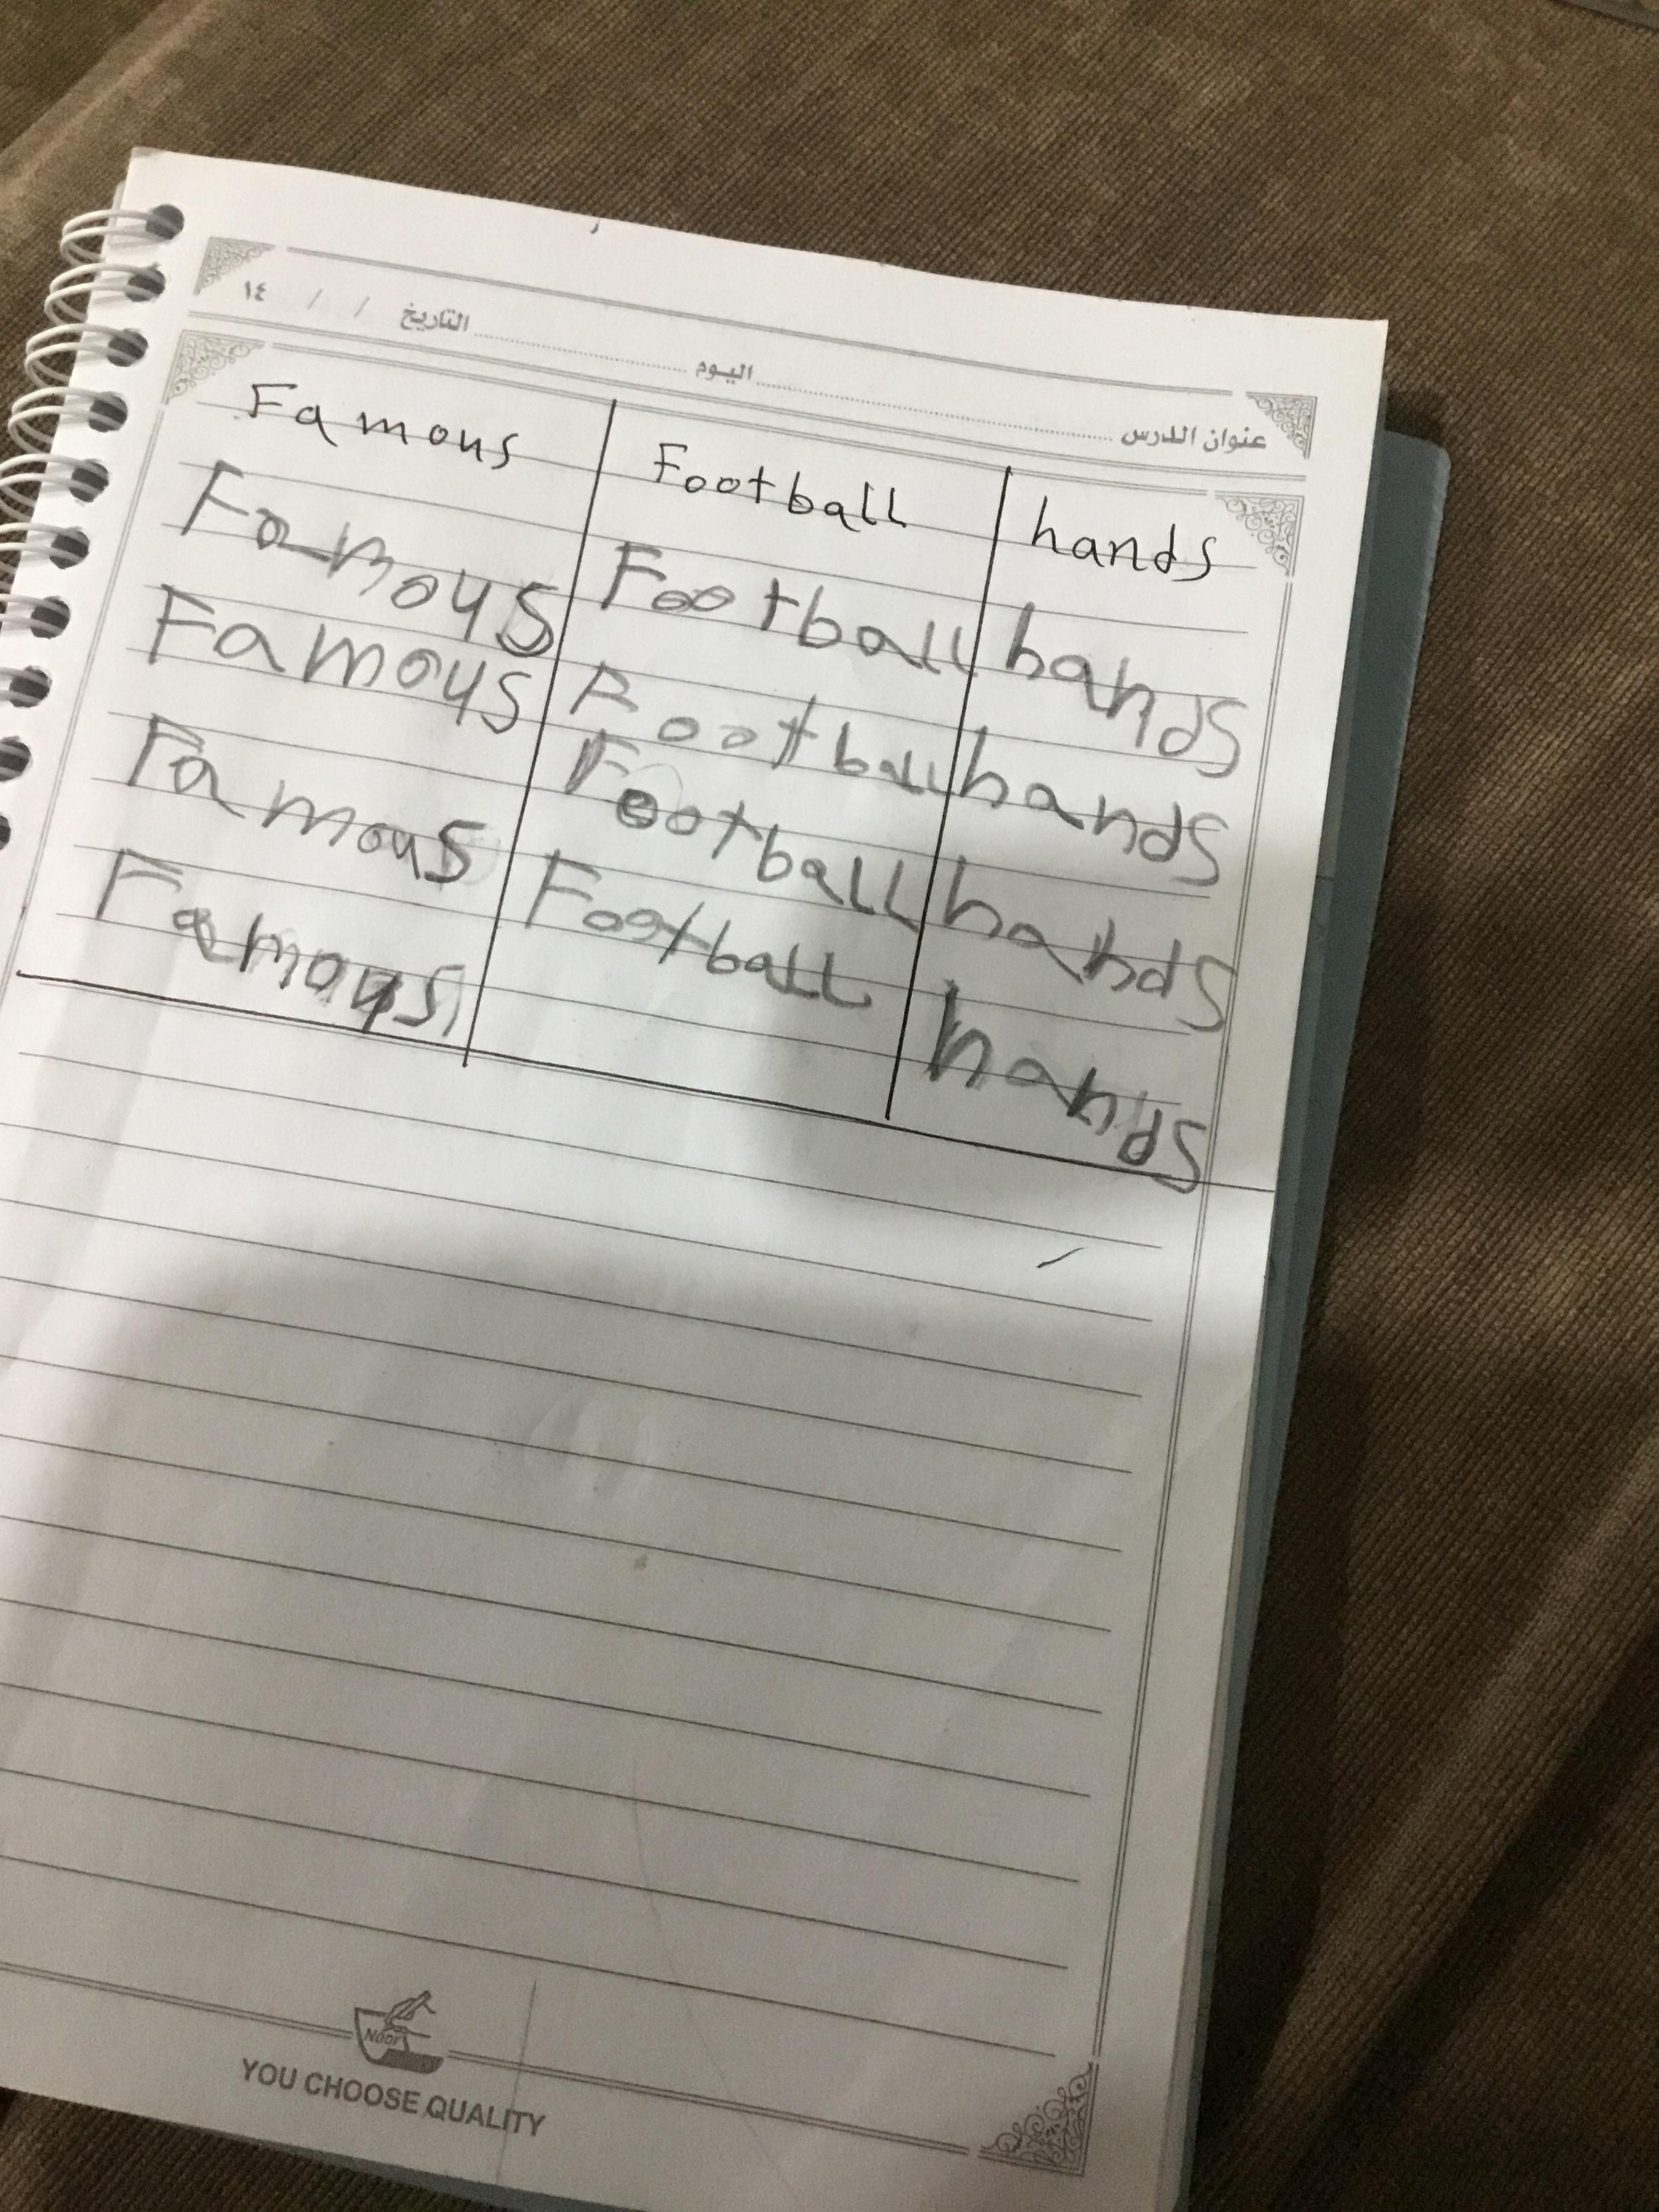 التاريخ / / ١٤
اليوم
عنوان الدرس
Famous Football hands
Famoys Football hands
Famoys Football hands
Famous Football hands
Famous Football hands
Noor
YOU CHOOSE QUALITY